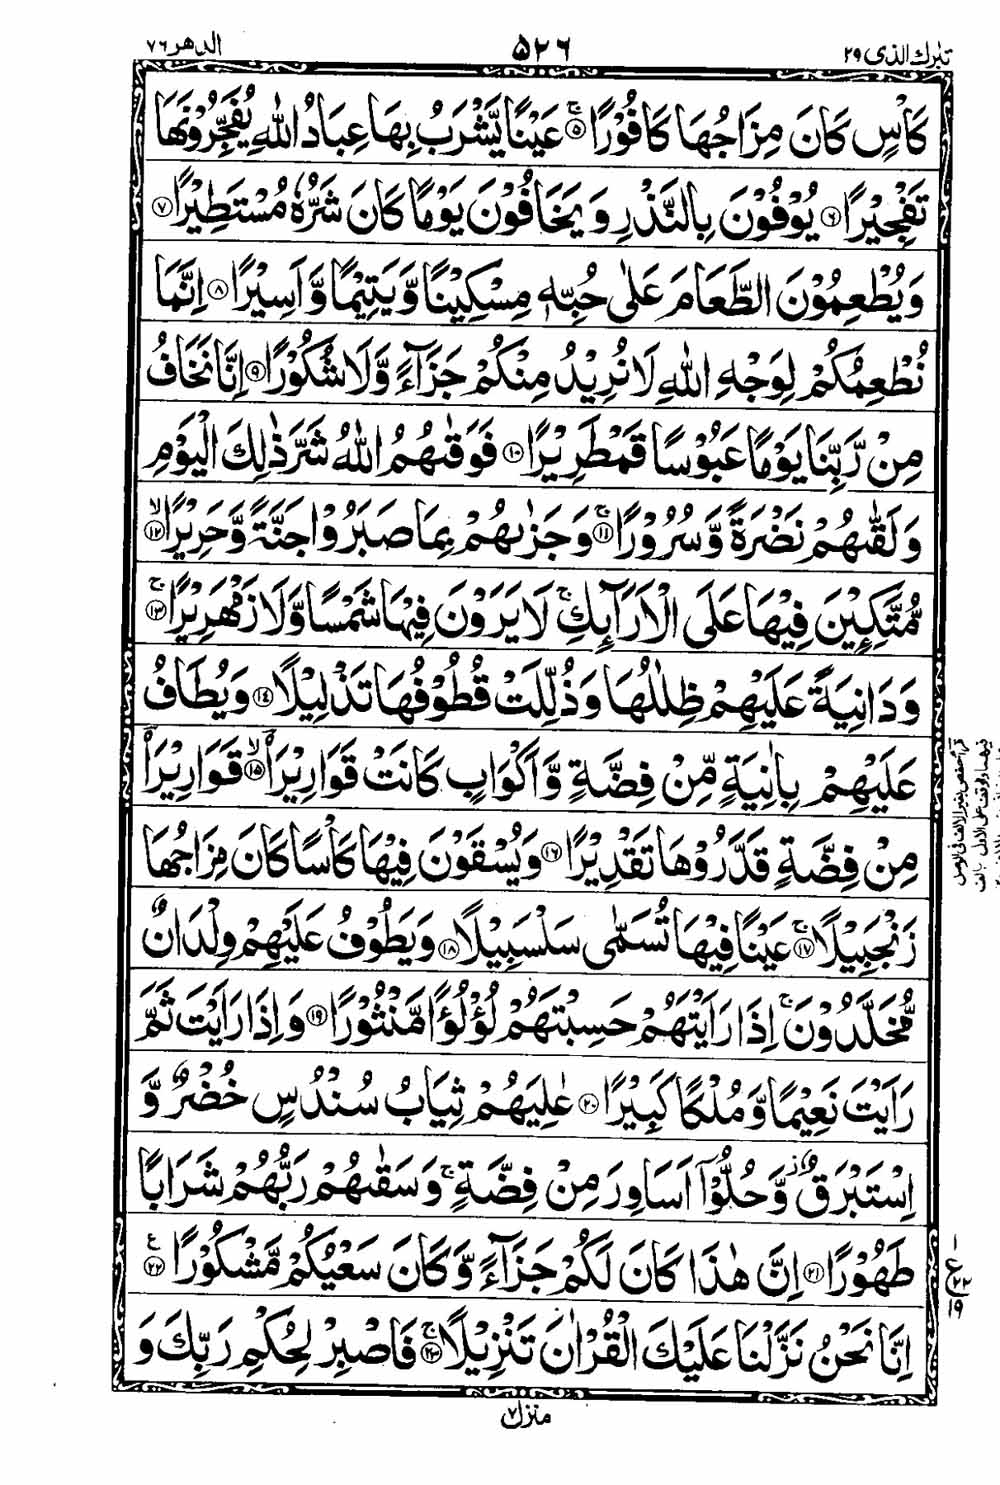 تبٰرك الذی ٢٩
٥٢٦
الدهر ٧٦
كَاْسٍ كَانَ مِزَاجُهَا كَافُوْرًا ۚ‏﴿۵﴾ عَيْنًا يَّشْرَبُ بِهَا عِبَادُ اللّٰهِ يُفَجِّرُوْنَهَا
تَفْجِيْرًا ﴿۶﴾ يُوْفُوْنَ بِالنَّذْرِ وَيَخَافُوْنَ يَوْمًا كَانَ شَرُّهٗ مُسْتَطِيْرًا ﴿۷﴾
وَيُطْعِمُوْنَ الطَّعَامَ عَلٰى حُبِّهٖ مِسْكِيْنًا وَّيَتِيْمًا وَّاَسِيْرًا ﴿۸﴾ اِنَّمَا
نُطْعِمُكُمْ لِوَجْهِ اللّٰهِ لَا نُرِيْدُ مِنْكُمْ جَزَآءً وَّلَا شُكُوْرًا ﴿۹﴾ اِنَّا نَخَافُ
مِنْ رَّبِّنَا يَوْمًا عَبُوْسًا قَمْطَرِيْرًا ﴿۱۰﴾ فَوَقٰىهُمُ اللّٰهُ شَرَّ ذٰلِكَ الْيَوْمِ
وَلَقّٰىهُمْ نَضْرَةً وَّسُرُوْرًا ۚ﴿۱۱﴾ وَجَزٰىهُمْ بِمَا صَبَرُوْا جَنَّةً وَّحَرِيْرًا ۙ﴿۱۲﴾
مُّتَّكِـِٕيْنَ فِيْهَا عَلَى الْاَرَآىِٕكِ ۚ لَا يَرَوْنَ فِيْهَا شَمْسًا وَّلَا زَمْهَرِيْرًا ۚ﴿۱۳﴾
وَدَانِيَةً عَلَيْهِمْ ظِلٰلُهَا وَذُلِّلَتْ قُطُوْفُهَا تَذْلِيْلًا ﴿۱۴﴾ وَيُطَافُ
عَلَيْهِمْ بِاٰنِيَةٍ مِّنْ فِضَّةٍ وَّاَكْوَابٍ كَانَتْ قَوَارِيْرَا۟ ۙ﴿۱۵﴾ قَوَارِيْرَا۟
مِنْ فِضَّةٍ قَدَّرُوْهَا تَقْدِيْرًا ﴿۱۶﴾ وَيُسْقَوْنَ فِيْهَا كَاْسًا كَانَ مِزَاجُهَا
زَنْجَبِيْلًا ۚ﴿۱۷﴾ عَيْنًا فِيْهَا تُسَمّٰى سَلْسَبِيْلًا ﴿۱۸﴾ وَيَطُوْفُ عَلَيْهِمْ وِلْدَانٌ
مُّخَلَّدُوْنَ ۚ اِذَا رَاَيْتَهُمْ حَسِبْتَهُمْ لُؤْلُؤًا مَّنْثُوْرًا ﴿۱۹﴾ وَاِذَا رَاَيْتَ ثَمَّ
رَاَيْتَ نَعِيْمًا وَّمُلْكًا كَبِيْرًا ﴿۲۰﴾ عٰلِيَهُمْ ثِيَابُ سُنْدُسٍ خُضْرٌ وَّ
اِسْتَبْرَقٌ ۡ وَّحُلُّوْٓا اَسَاوِرَ مِنْ فِضَّةٍ ۚ وَسَقٰىهُمْ رَبُّهُمْ شَرَابًا
طَهُوْرًا ﴿۲۱﴾ اِنَّ هٰذَا كَانَ لَكُمْ جَزَآءً وَّكَانَ سَعْيُكُمْ مَّشْكُوْرًا ﴿۲۲﴾ ع
اِنَّا نَحْنُ نَزَّلْنَا عَلَيْكَ الْقُرْاٰنَ تَنْزِيْلًا ۚ﴿۲۳﴾ فَاصْبِرْ لِحُكْمِ رَبِّكَ وَ
منزل ٧